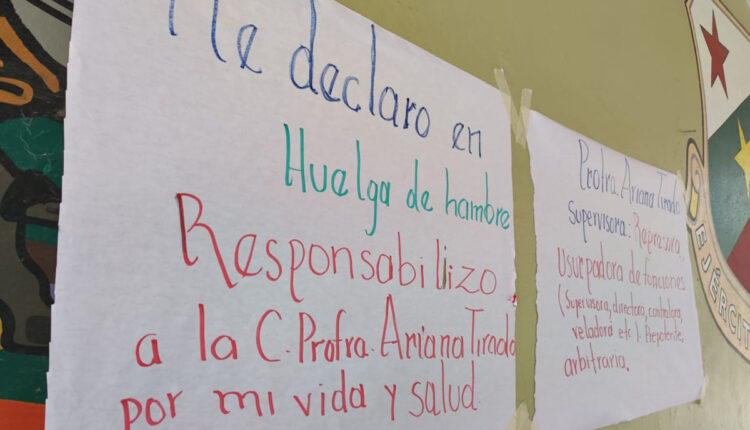 Me declaro en
Huelga de hambre
Responsabilizo
a la C. Profra. Ariana Tirado
por mi vida y salud
Profra. Ariana Tirado
Supervisora: Represora,
Usurpadora de funciones
(Supervisora, directora, contralora,
veladora etc). Prepotente,
arbitraria.
EJÉRCIT